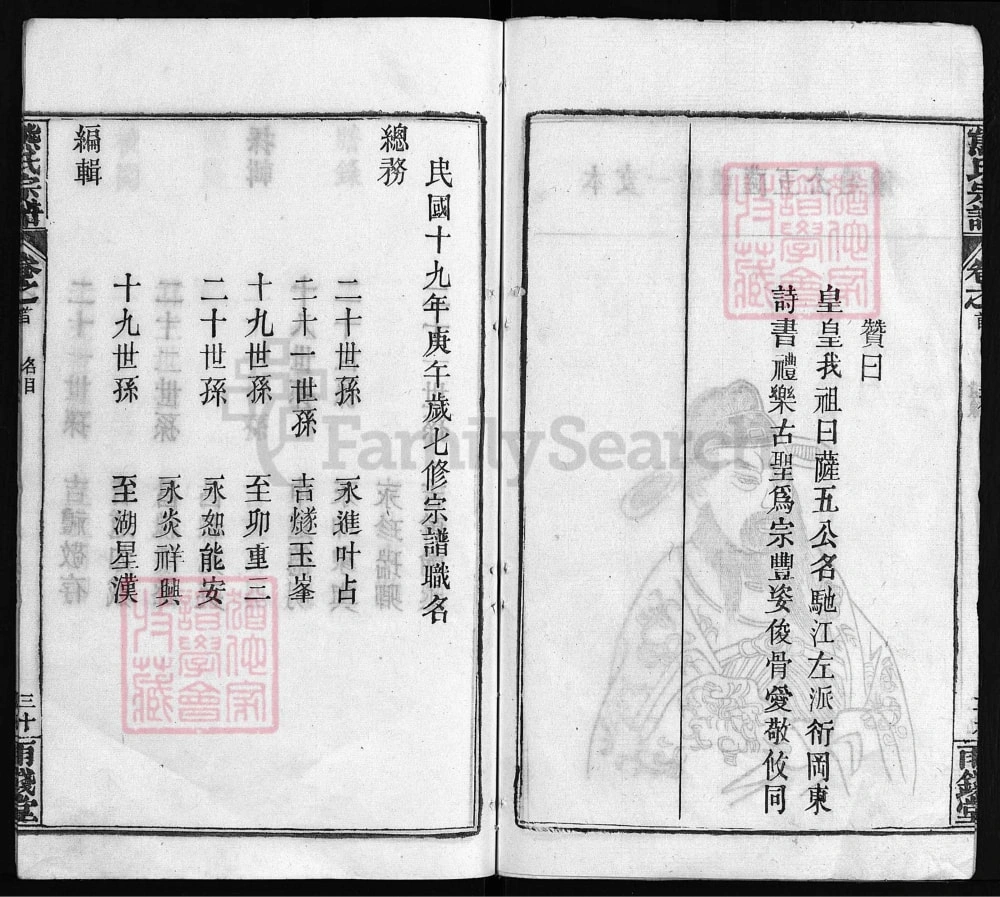 贊曰
皇皇我祖曰薩五公名馳江左派衍岡東
詩書禮樂古聖爲宗豐姿俊骨愛敬攸同
民國十九年庚午歲七修宗譜職名
總務
二十世孫 永進叶占
二十一世孫 吉燧玉峯
十九世孫 至卯重三
二十世孫 永恕能安
永炎祥興
十九世孫 至湖星漢
編輯
熊氏宗譜 卷之首 名目 三十 雨錢堂
FamilySearch